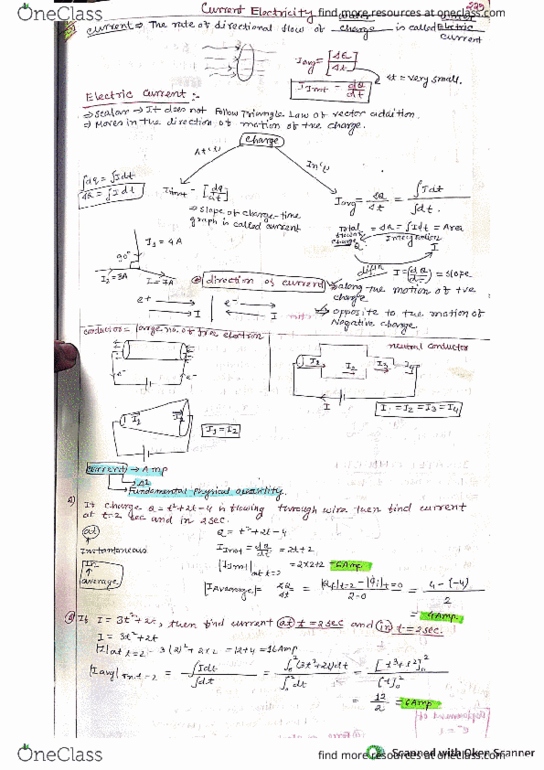 OneClass
find more resources at oneclass.com
Current Electricity
229
current ⇒ The rate of directional flow of charge is called Electric
current
Iavg = [ΔQ/Δt]
Δt = very small.
IInst = dQ/dt
Electric current :-
⇒ Scalar → It does not follow Triangle Law of vector addition.
⇒ Moves in the direction of motion of +ve charge.
charge
At 't'
In 't'
∫dQ = ∫Idt
ΔQ = ∫Idt
IInst = [dq/dt]
⇒ slope of charge-time
graph is called current
Iavg = ΔQ/Δt = ∫Idt / ∫dt .
Total
charge
Q
= ΔQ = ∫Idt = Area
Integration
I
I = (dQ/dt) = slope
I1 = 4A
90°
I2 = 3A
I = 7A
direction of current
along the motion of +ve
charge
opposite to the motion of
Negative charge.
e+
I
e-
I
conductor = large no. of free electron
neutral conductor
e-
e-
I1
I2
I3
I4
I
I1 = I2 = I3 = I4
I1
I2
I1 = I2
current → Amp
Fundamental physical quantity.
If charge Q = t²+2t-4 is flowing through wire then find current
at t=2 sec and in 2sec.
at
Instantaneous
In
average
Q = t²+2t-4
IInst = dQ/dt = 2t+2
|IInst| at t=2 = 2x2+2 = 6Amp
|IAverage| = ΔQ/Δt = |Qf|t=2 - |Qi|t=0 / 2-0 = 4-(-4) / 2
= 4Amp.
If I = 3t²+2t, then find current at t=2sec and in t=2sec.
I = 3t²+2t
|I| at t=2 = 3(2)²+2x2 = 12+4 = 16Amp
|Iavg| in t=2 = ∫Idt / ∫dt = ∫₀²(3t²+2t)dt / ∫₀²dt = [t³+t²]₀² / [t]₀²
= 12/2 = 6Amp
OneClass
find more resources at oneclass.com
Scanned with Oken Scanner